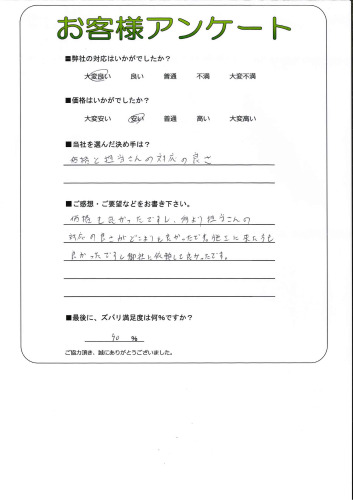 お客様アンケート
■弊社の対応はいかがでしたか?
大変良い 良い 普通 不満 大変不満
■価格はいかがでしたか?
大変安い 安い 普通 高い 大変高い
■当社を選んだ決め手は?
価格と担当さんの対応の良さ
■ご感想・ご要望などをお書き下さい。
価格も良かったですし、何より担当さんの
対応の良さがどこよりも良かったです。施工に来た方も
良かったですし御社に依頼して良かったです。
■最後に、ズバリ満足度は何%ですか?
90 %
ご協力頂き、誠にありがとうございました。